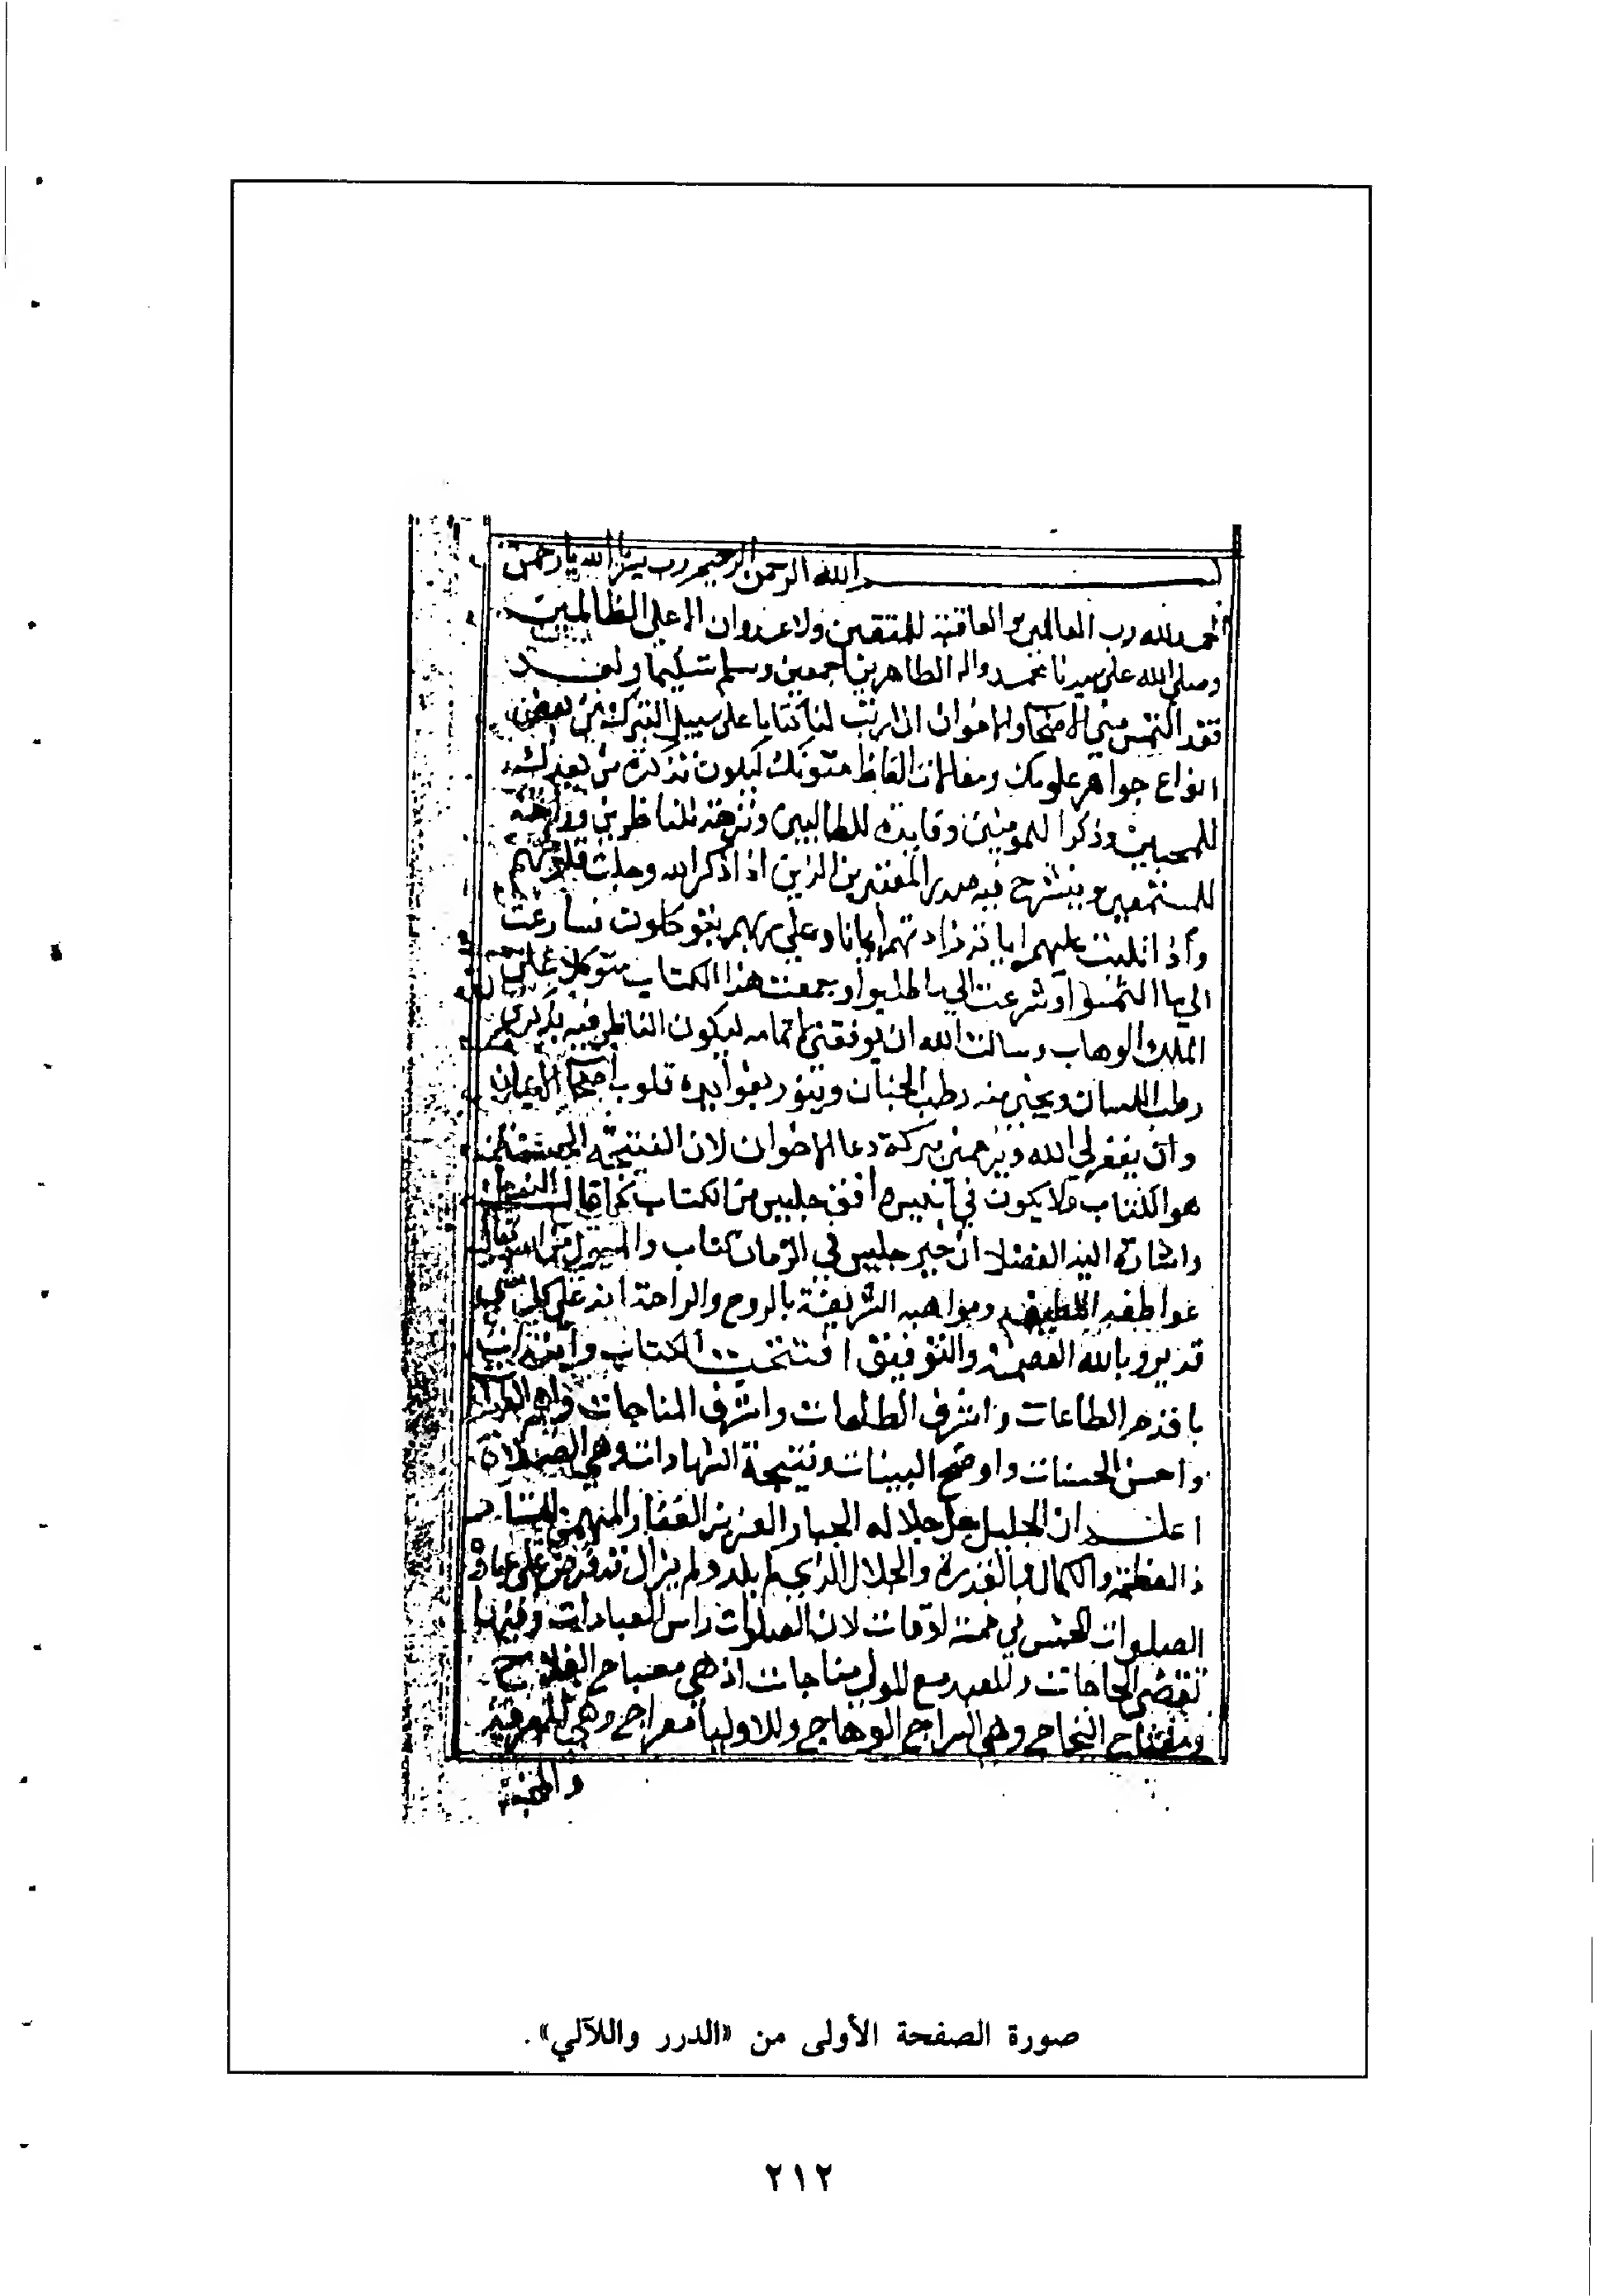 بسم الله الرحمن الرحيم رب يسر يا الله يا رحمن
الحمد لله رب العالمين والعاقبة للمتقين ولا عدوان الا على الظالمين
وصلى الله على سيدنا محمد واله الطاهرين اجمعين وسلم تسليما وبعد
فقد التمس مني الاصحاب والاخوان ان ارتب لنا كتابا على سبيل التبرك من بعض
انواع جواهر علومك ومقالات الفاظ متونك ليكون تذكرة من بعدك
للمحبين وذكرا للمومنين وفايدة للطالبين ونزهة للناظرين وراحة
للمستمعين وينشرح فيه صدر الذين اذا ذكر الله وجلت قلوبهم
واذا تليت عليهم اياته زادتهم ايمانا وعلى ربهم يتوكلون فسارعت
الى ما التمسوا وشرعت الى ما طلبوا وجمعت هذا الكتاب متوكلا على
الملك الوهاب وسالت الله ان يوفقني لاتمامه ليكون الناظر فيه
رطب اللسان منه رطب الجنان وينور بفوايده قلوب اصحاب
وان يغفر لي الله ويرحمني ببركة دعا الاخوان لان
هو الكتاب ولا يكون في جليس من الكتاب كما قال
واشارة اليه الفضلا ان خير جليس في الزمان كتاب والمسول من الله تعالى
عواطفه ومواهبه الشريفة بالروح والراحة انه على كل شي
قدير وبالله العصمة والتوفيق افتتحت الكتاب
الطاعات واشرف واشرف المناجات
واحسن الحسنات واوضح البينات ونتيجة الشهادات وهي الصلاة
اعلم ان الجليل جل جلاله الجبار العزيز الغفار
ذا العظمة والكمال والقدرة والجلال الذي لم يلد ولم يزال قد فرض على عباده
الصلوات الخمس في خمسة اوقات لان الصلوات راس العبادات
تقضى الحاجات وللعبد مع المولى مناجات اذ هي مصباح الفلاح
ومفتاح النجاح وهي السراج الوهاج وللاوليا معراج وهي للمعرفة
والمحبة
صورة الصفحة الأولى من «الدرر واللآلي».
٢١٢